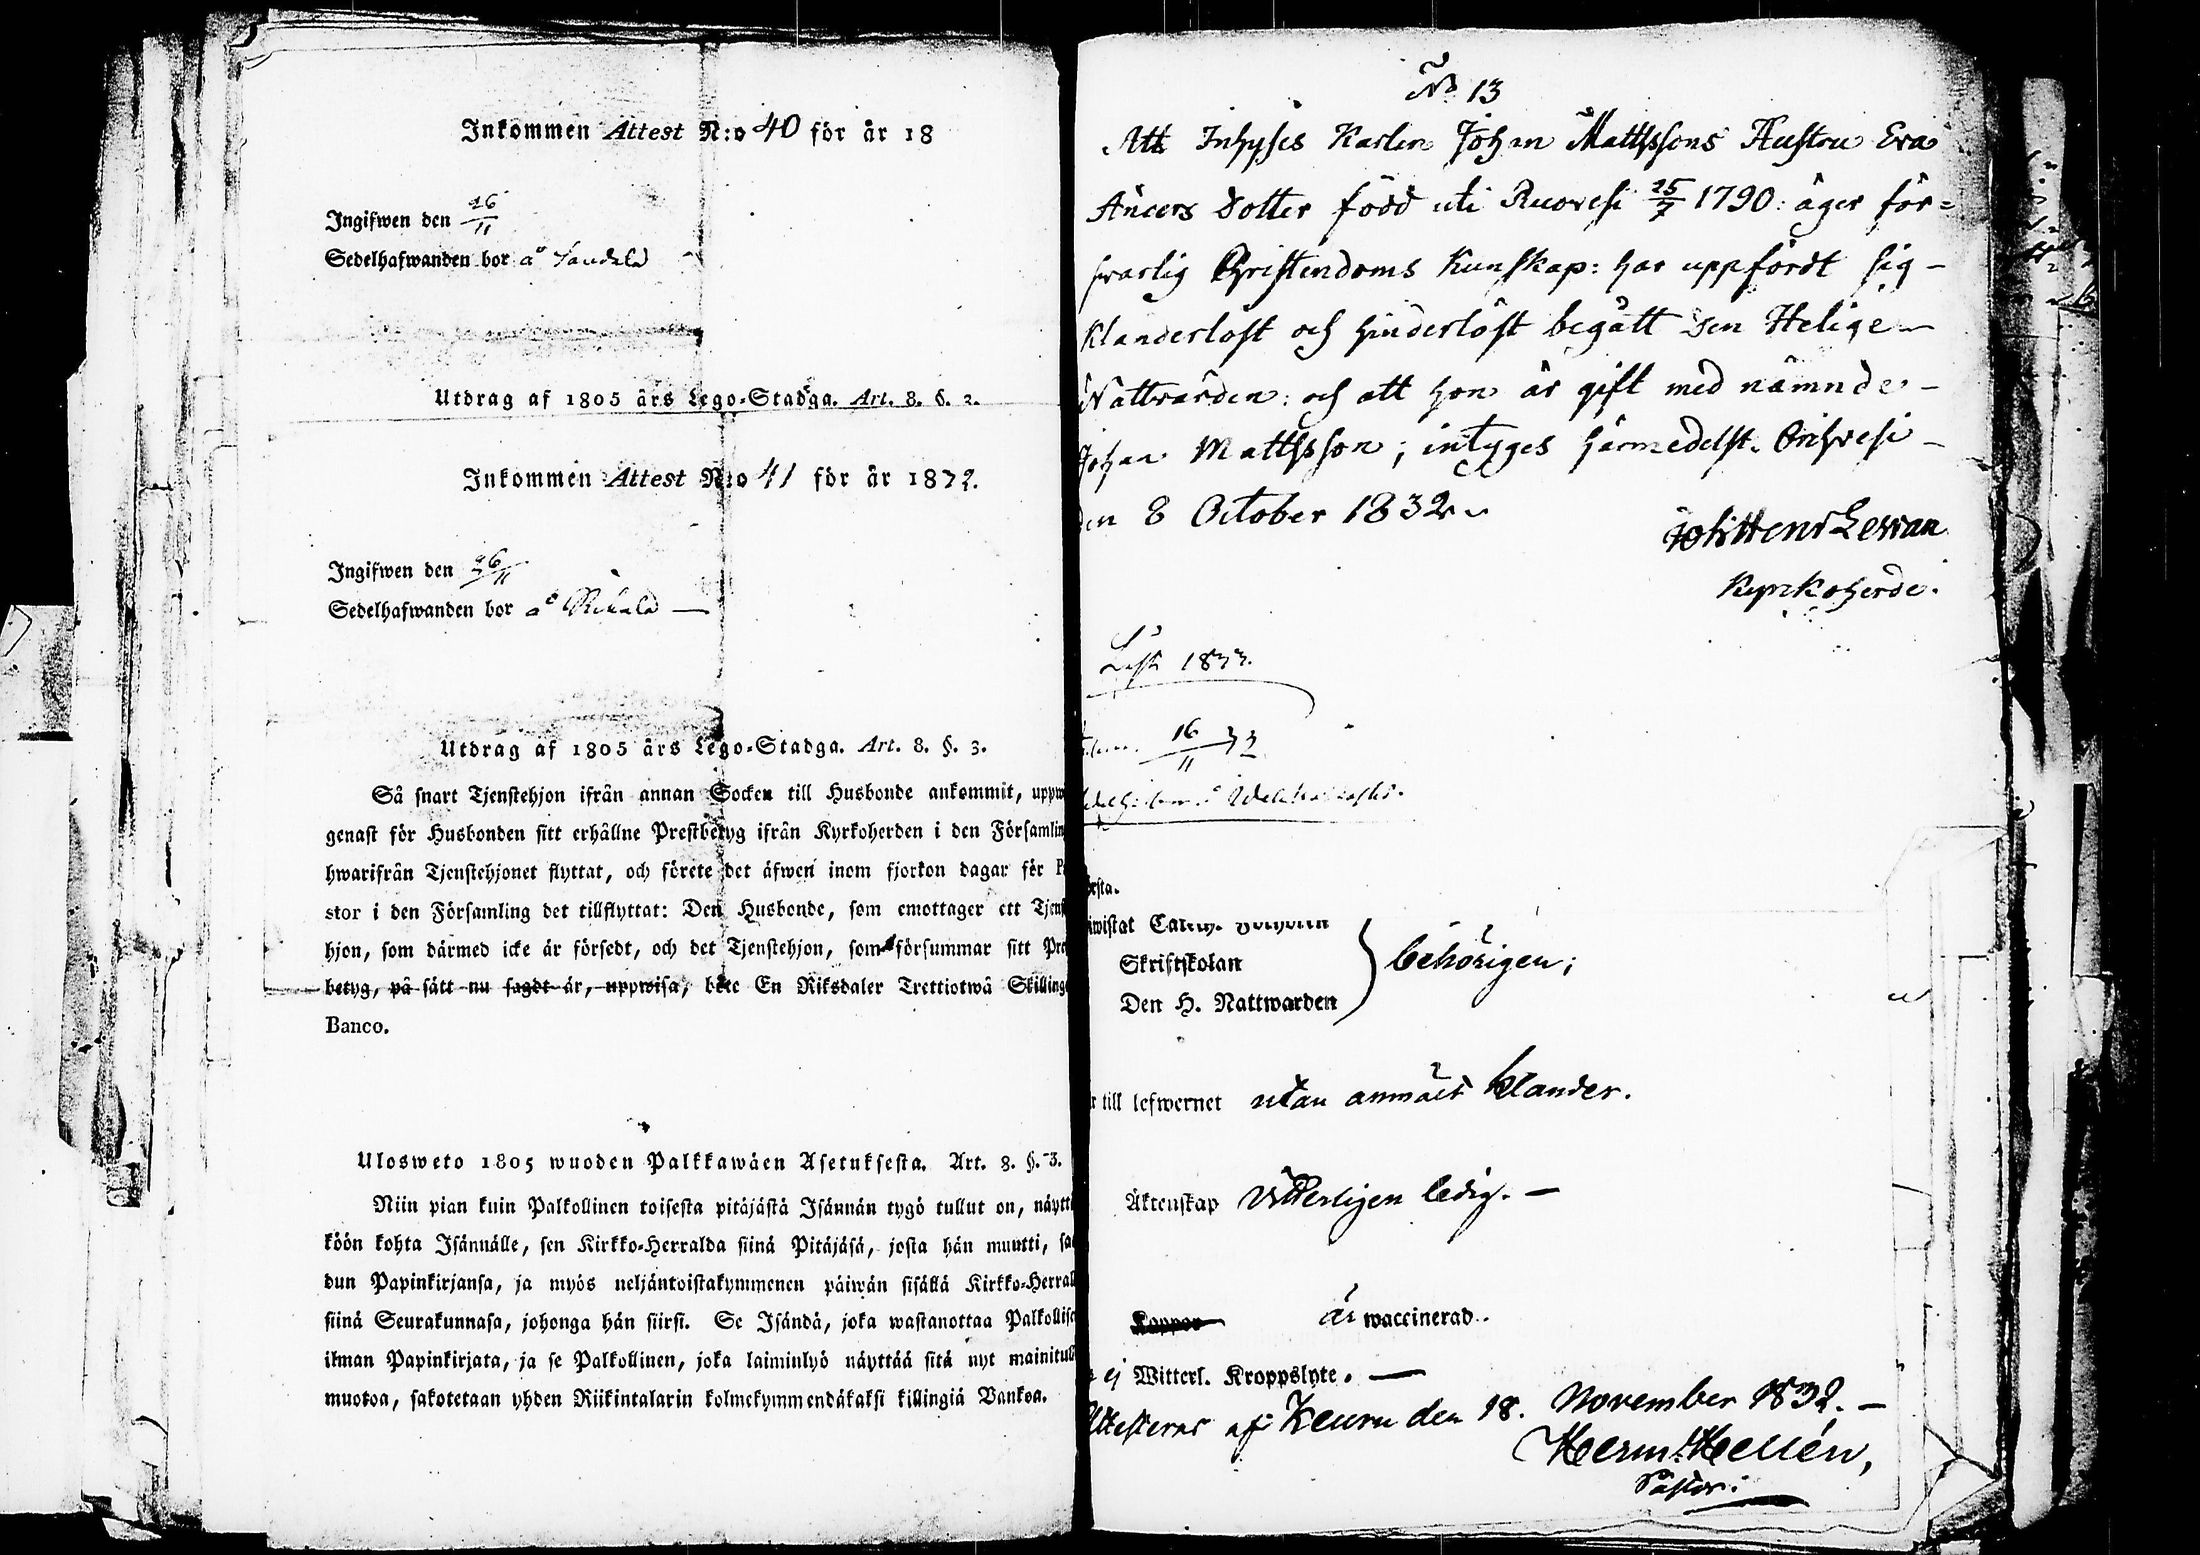 Inkommen Attest N:o 40 för år 18
Ingifwen den 26/11
Sedelhafwanden bor å
Utdrag af 1805 års Lego-Stadga. Art. 8. §. 3.
Inkommen Attest N:o 41 för år 1832.
Ingifwen den 26/11
Sedelhafwanden bor å
Utdrag af 1805 års Lego-Stadga. Art. 8. §. 3.
Så snart Tjenstehjon ifrån annan Socken till Husbonde ankommit, uppw
genast för Husbonden sitt erhållne Prestbetyg ifrån Kyrkoherden i den Församlin
hwarifrån Tjenstehjonet flyttat, och förete det äfwen inom fjorton dagar för
stor i den Församling det tillflyttat: Den Husbonde, som emottager ett Tjens
hjon, som därmed icke är försedt, och det Tjenstehjon, som försummar sitt Pre
betyg, på sätt nu sagdt är, uppwisa, böte En Riksdaler Trettiotwå Skilling
Banco.
Ulosweto 1805 wuoden Palkkawäen Asetuksesta. Art. 8. §. 3.
Niin pian kuin Palkollinen toisesta pitäjästä Isännän tygö tullut on, näytt
köön kohta Isännälle, sen Kirkko-Herralda siinä Pitäjäsä, josta hän muutti, sa
dun Papinkirjansa, ja myös neljäntoistakymmenen päiwän sisällä Kirkko-Herral
siinä Seurakunnasa, johonga hän siirsi. Se Isändä, joka wastanottaa Palkollise
ilman Papinkirjata, ja se Palkollinen, joka laiminlyö näyttää sitä nyt mainitull
muotoa, sakotetaan yhden Riikintalarin kolmekymmendäkaksi killingiä Bankoa.
No 13
Att Inhyses Karlen Johan Mattssons Hustru Eva
Anders dotter född uti Ruovesi 25/7 1790: äger för=
svarlig Christendoms Kunskap: har uppfördt sig –
Klanderlöst och hinderlöst begått den Helige –
Nattvarden: och att hon är gift med nämnde –
Johan Mattsson; intyges härmedelst. Orihvesi –
den 8 October 1832.
Joh Henr
Kyrkoherde.
1833.
16/11 32
Skriftskolan
Den H. Nattwarden
behörigen;
till lefwernet utan anmält klander.
Äktenskap Vitterligen ledig. –
Koppor är waccinerad.
ej Witterl. Kroppslyte. –
Attesteras af Keuru den 18. November 1832. –
Herm: Hellén,
Pastor.